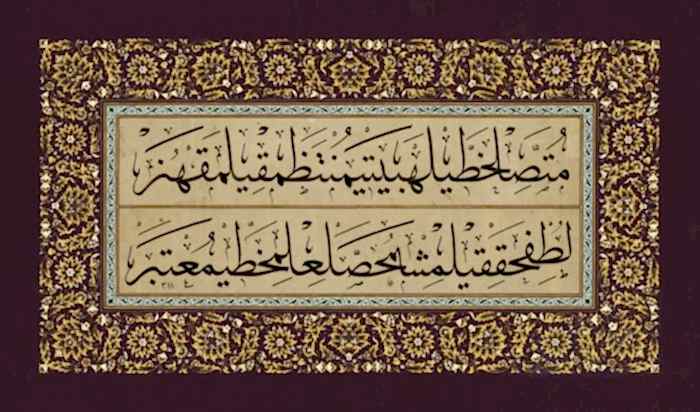 متصل خطيله بيتي منتظم قيلمق هنر
لطف حق قيلمش محصل عالم خطي معتبر